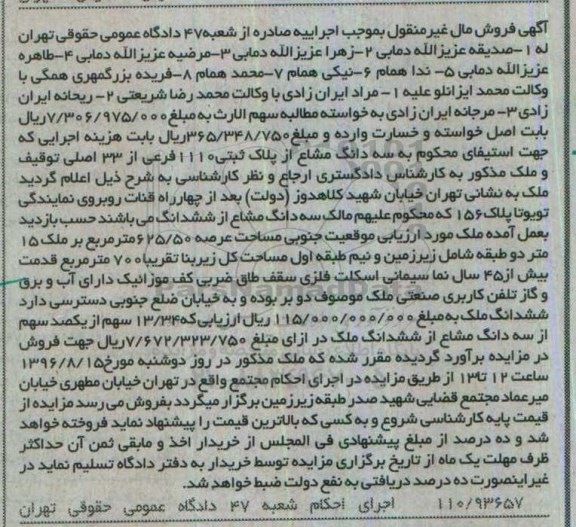 آگهی فروش مال غیرمنقول بموجب اجراییه صادره از شعبه۴۷ دادگاه عمومی حقوقی تهران
له ۱-صدیقه عزیز الله دمابی ۲-زهرا عزیز الله دمابی ۳-مرضیه عزیز الله دمابی ۴-طاهره
عزیز الله دمابی ۵- ندا همام ۶-نیکی همام ۷-محمد همام ۸-فریده بزرگمهری همگی با
وکالت محمد ایزانلو علیه ۱- مراد ایران زادی با وکالت محمد رضا شریعتی ۲- ریحانه ایران
زادی ۳- مرجانه ایران زادی به خواسته مطالبه سهم الارث به مبلغ ۷/۳۰۶/۹۷۵/۰۰۰ریال
بابت اصل خواسته و خسارت وارده و مبلغ ۳۶۵/۳۴۸/۷۵۰ریال بابت هزینه اجرایی که
جهت استیفای محکوم به سه دانگ مشاع از پلاک ثبتی ۱۱۱۰فرعی از ۳۳ اصلی توقیف
و ملک مذکور به کارشناس دادگستری ارجاع و نظر کارشناسی به شرح ذیل اعلام گردید
ملک به نشانی تهران خیابان شهید کلاهدوز (دولت) بعد از چهارراه قنات روبروی نمایندگی
تویوتا پلاک۱۵۶ که محکوم علیهم مالک سه دانگ مشاع از ششدانگ می باشند حسب بازدید
بعمل آمده ملک مورد ارزیابی موقعیت جنوبی مساحت عرصه ۶۲۵/۵۰مترمربع بر ملک ۱۵
متر دو طبقه شامل زیرزمین و نیم طبقه اول مساحت کل زیربنا تقریبا۷۰۰ مترمربع قدمت
بیش از۴۵ سال نما سیمانی اسکلت فلزی سقف طاق ضربی کف موزائیک دارای آب و برق
و گاز تلفن کاربری صنعتی ملک موصوف دو بر بوده و به خیابان ضلع جنوبی دسترسی دارد
ششدانگ ملک به مبلغ ۱۱۵/۰۰۰/۰۰۰/۰۰۰ ریال ارزیابی که۱۳/۳۴ سهم از یکصد سهم
از سه دانگ مشاع از ششدانگ ملک در ازای مبلغ ۷/۶۷۲/۳۲۳/۷۵۰ریال جهت فروش
در مزایده برآورد گردیده مقرر شده که ملک مذکور در روز دوشنبه مورخ۱۳۹۶/۸/۱۵
ساعت ۱۲ تا۱۳ از طریق مزایده در اجرای احکام مجتمع واقع در تهران خیابان مطهری خیابان
میرعماد مجتمع قضایی شهید صدر طبقه زیرزمین برگزار میگردد بفروش می رسد مزایده از
قیمت پایه کارشناسی شروع و به کسی که بالاترین قیمت را پیشنهاد نماید فروخته خواهد
شد و ده درصد از مبلغ پیشنهادی فی المجلس از خریدار اخذ و مابقی ثمن آن حداکثر
ظرف مهلت یک ماه از تاریخ برگزاری مزایده توسط خریدار به دفتر دادگاه تسلیم نماید در
غیراینصورت ده درصد دریافتی به نفع دولت ضبط خواهد شد.
۱۱۰/۹۳۶۵۷ اجرای احکام شعبه ۴۷ دادگاه عمومی حقوقی تهران